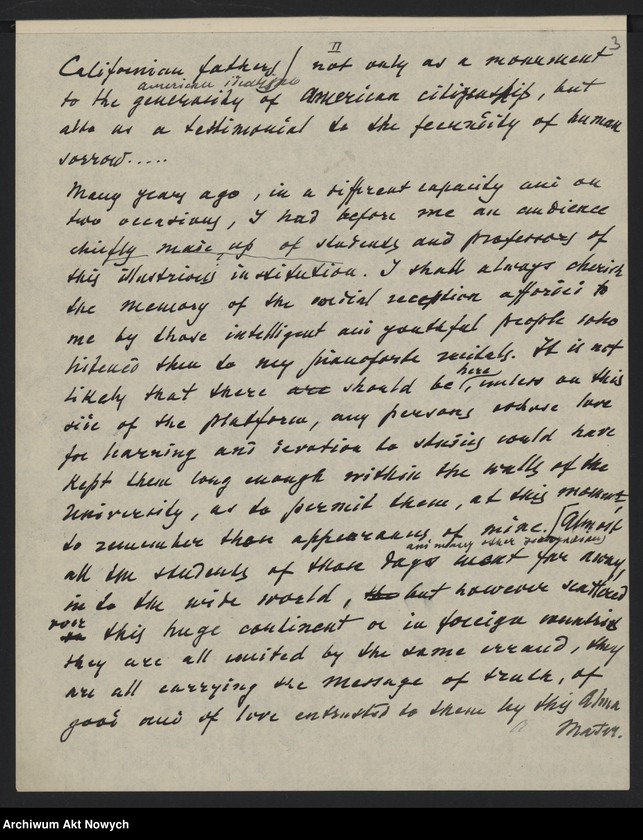 II
3
Californian fathers / not only as a monument
american
to the generosity of American citizenship, but
also as a testimonial to the fecundity of human
sorrow.....
Many years ago, in a different capacity and on
two occasions, I had before me an audience
chiefly made up of students and professors of
this illustrious institution. I shall always cherish
the memory of the cordial reception afforded to
me by those intelligent and youthful people who
listened then to my pianoforte recitals. It is not
here
likely that there are should be, unless on this
side of the platform, any persons whose love
for learning and devotion to studies could have
kept them long enough within the walls of the
University, as to permit them, at this moment,
to remember those appearances of mine. / Almost
and many other
all the students of those days went far away
in to the wide world, the but however scattered
over
this huge continent or in foreign countries
they are all united by the same errand, they
are all carrying the message of truth, of
good and of love entrusted to them by this Alma
Mater.
Archiwum Akt Nowych